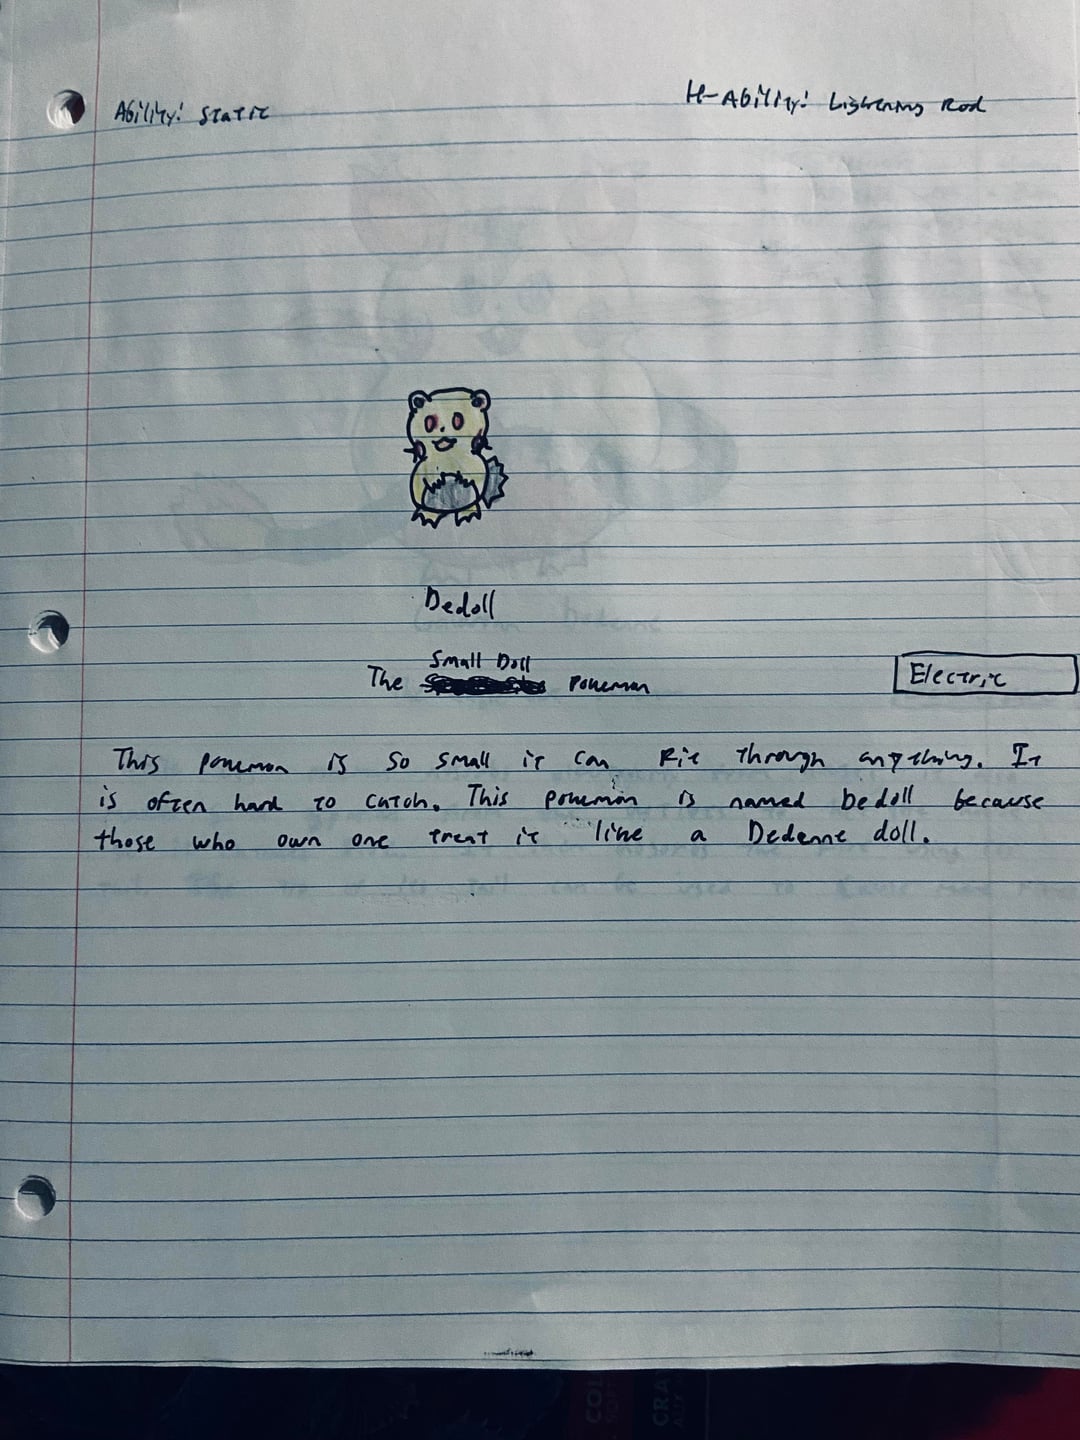 Ability: Static
H-Ability: Lightning Rod
Dedoll
Small Doll
The Pokemon
Electric
This pokemon is so small it can fit through anything. It
is often hard to catch. This pokemon is named Dedoll because
those who own one treat it like a Dedenne doll.
COL
CRA